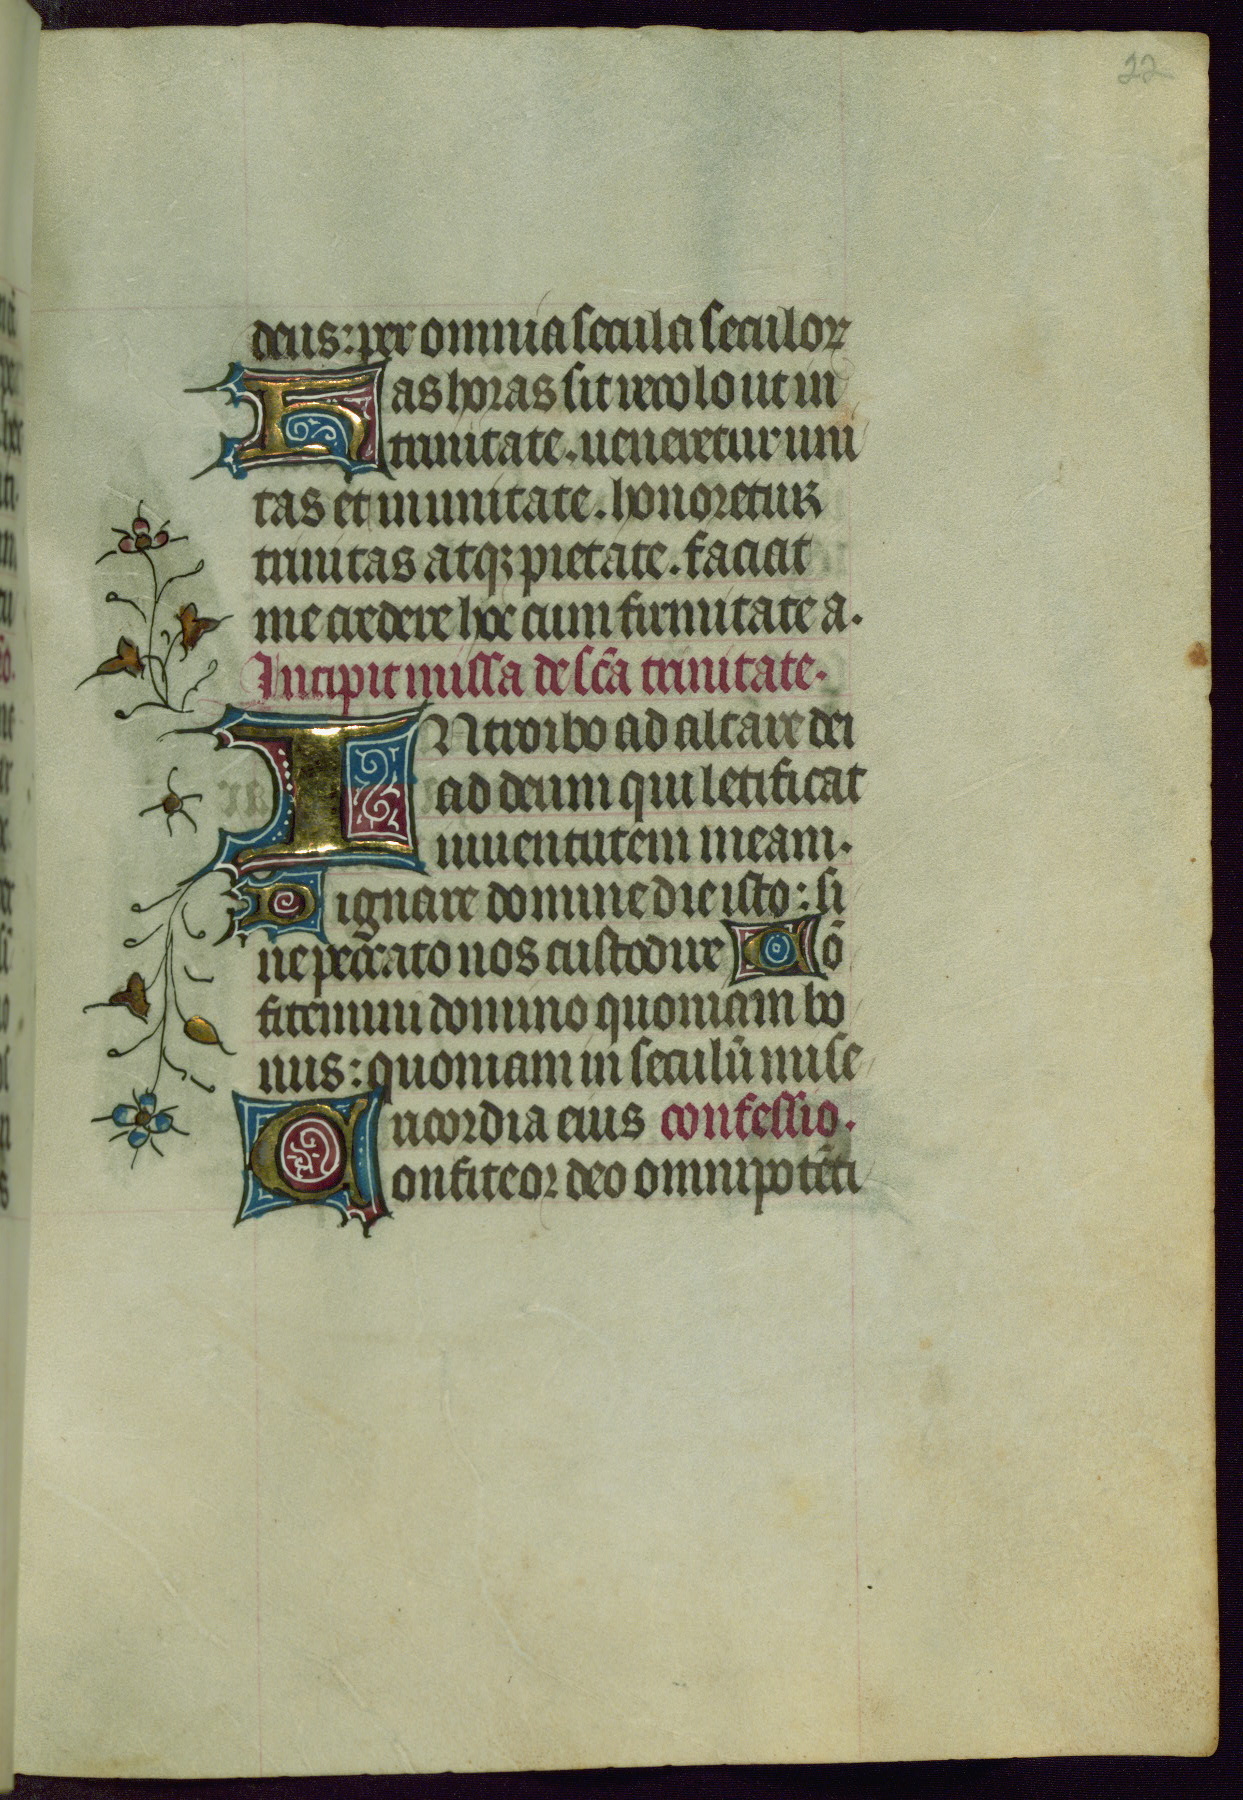 22
deus: per omnia secula seculoꝝ
Has horas sit recolo ut in
trinitate. ueneretur uni
tas et in unitate. honoretur
trinitas atqꝫ pietate. faciat
me credere hoc cum firmitate a.
Incipit missa de sc̄a trinitate.
INtroibo ad altare dei
ad deum qui letificat
iuuentutem meam.
Dignare domine die isto: si
ne peccato nos custodire Cō
fitemini domino quoniam bo
nus: quoniam in seculū mise
ricordia eius confessio.
Confiteor deo omnipotēti